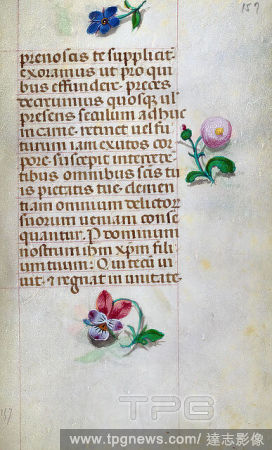 157
prenoscis te supplicit
exoramus ut pro qui
bus effundere preces
decreuimus quosq; uel
presens seculum adhuc
in carne retinet uel fu
turum iam exutos cor
pore suscepit interce
tibus omnibus scis tu
is pietatis tue clemen
tia omnium delictor
suorum ueniam conse
quantur. P dominum
nostrum ihm xpm fili
um tuum. Qui tecu ui
uit. et regnat in unitate
TPG
www.tpgnews.com/達志影像